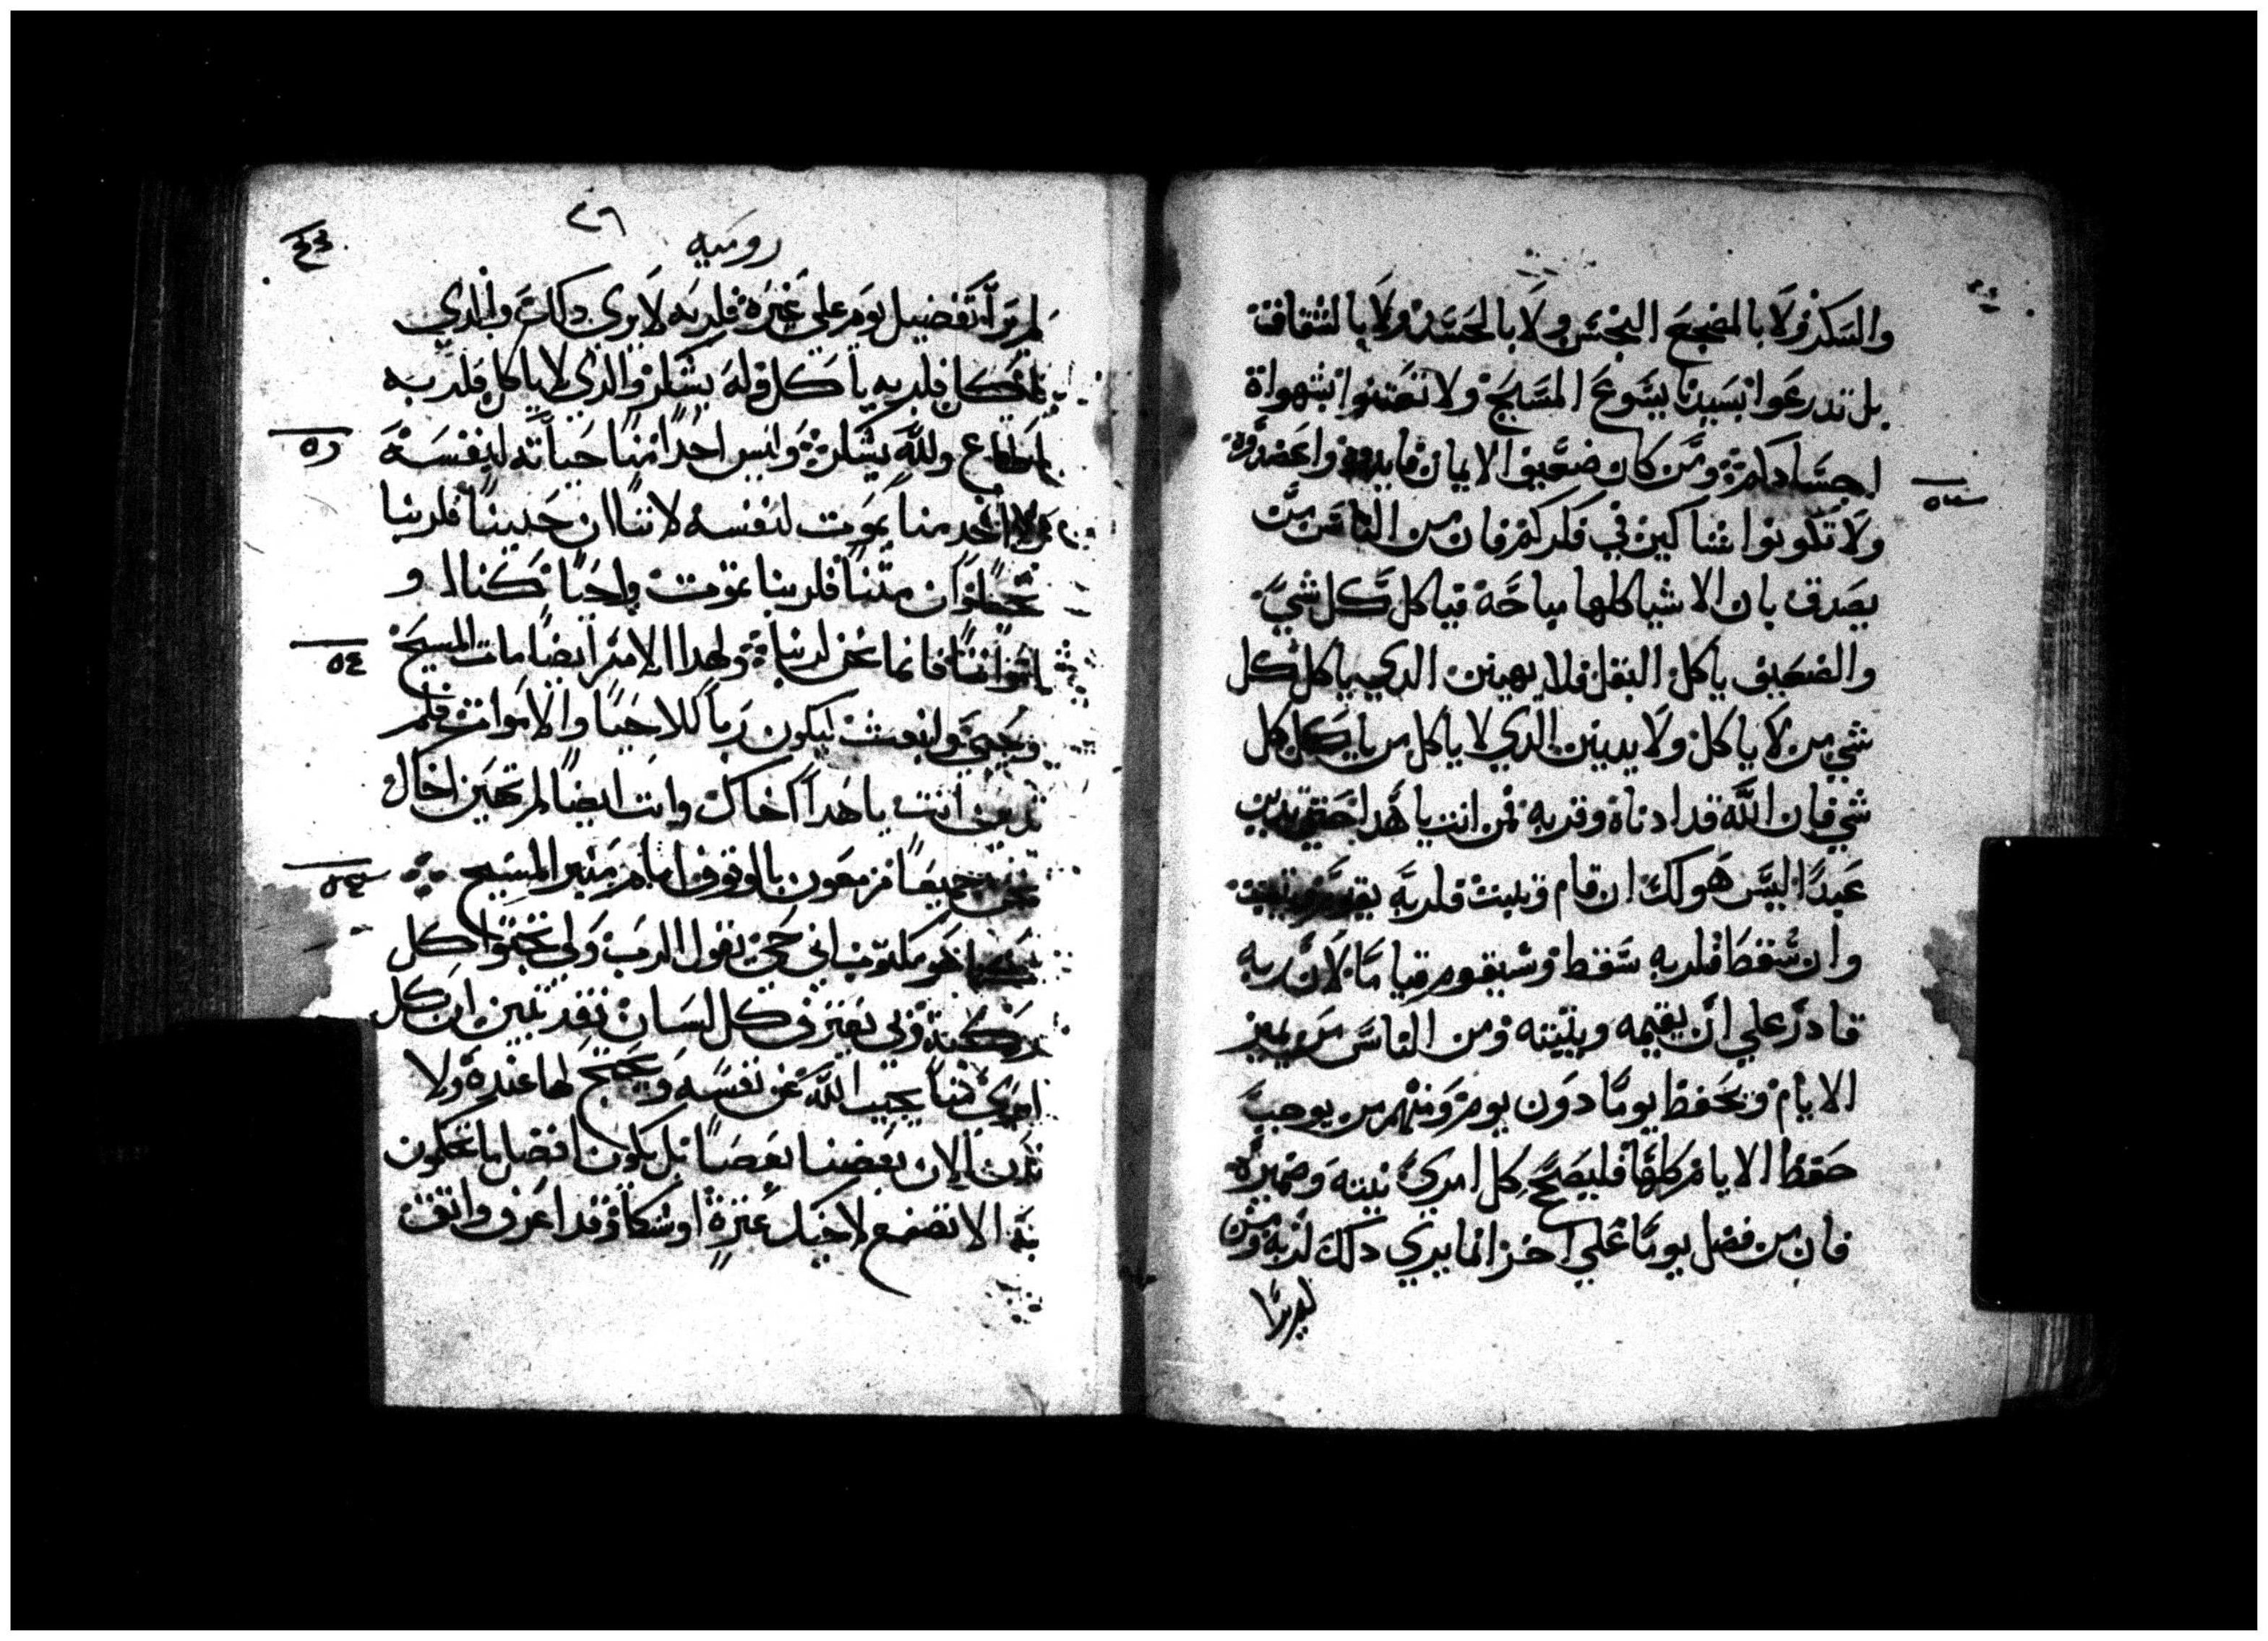 والسكر ولا بالمضجع النجس ولا بالحسد ولا بالشقاقة
بل تدرعوا بسيدنا يسوع المسيح ولا تفتنوا بشهواة
اجسادكم ومن كان ضعيف الايمان فايدوه واعضدوه
ولا تكونوا شاكين في فكركم فان من الناس من
يصدق بان الاشيا كلها مباحة فياكل كل شي
والضعيف ياكل البقل فلا يهينن الدي ياكل كل
شي من لا ياكل ولا يدينن الدي لا ياكل من ياكل كل
شي فان الله قد ادناه وقربه فمن انت يا هدا حتي تدين
عبدا ليس هو لك ان قام وثبت فلربه يقوم ويثبت
وان سقط فلربه سقط وسيقوم قياما لان ربه
قادر علي ان يقيمه ويثبته ومن الناس من يميز
الايام ويحفظ يوما دون يوم ومنهم من يوجب
حفظ الايام كلها فليصحح كل امري نيته وضميره
فان من فضل يوما علي اخر انما يري دلك لربه ومن
لم يرا
٤٦
روميه
لم يرا تفضيل يوم علي غيره فلربه لا يري دلك والدي
ياكل فلربه ياكل وله يشكر والدي لا ياكل فلربه
ولله يشكر وليس احدا منا حياته لنفسه
٥٥
ولا احد منا يموت لنفسه لاننا ان حيينا فلربنا
نحيا وان متنا فلربنا نموت واحيا كنا او
امواتنا فانما نحن لربنا ولهدا الامر ايضا مات المسيح
٥٤
وحيي وانبعث ليكون ربا للاحيا والاموات فلم
تدين انت يا هدا اخاك وانت ايضا لم تحين اخاك
نحن جميعا مزمعون بالوقوف امام منبر المسيح
كما هو مكتوب اني حي يقول الرب ولي تجثوا كل
ركبة وبي يعترف كل لسان فقد تبين ان كل
امري منا يجيب الله عن نفسه ويحتج لها عنده ولا
ندن الان بعضنا بعضا بل يكون افضل ما تحكمون
به الا تضع لاخيك عثرة او شكا وقد اعرف واثق